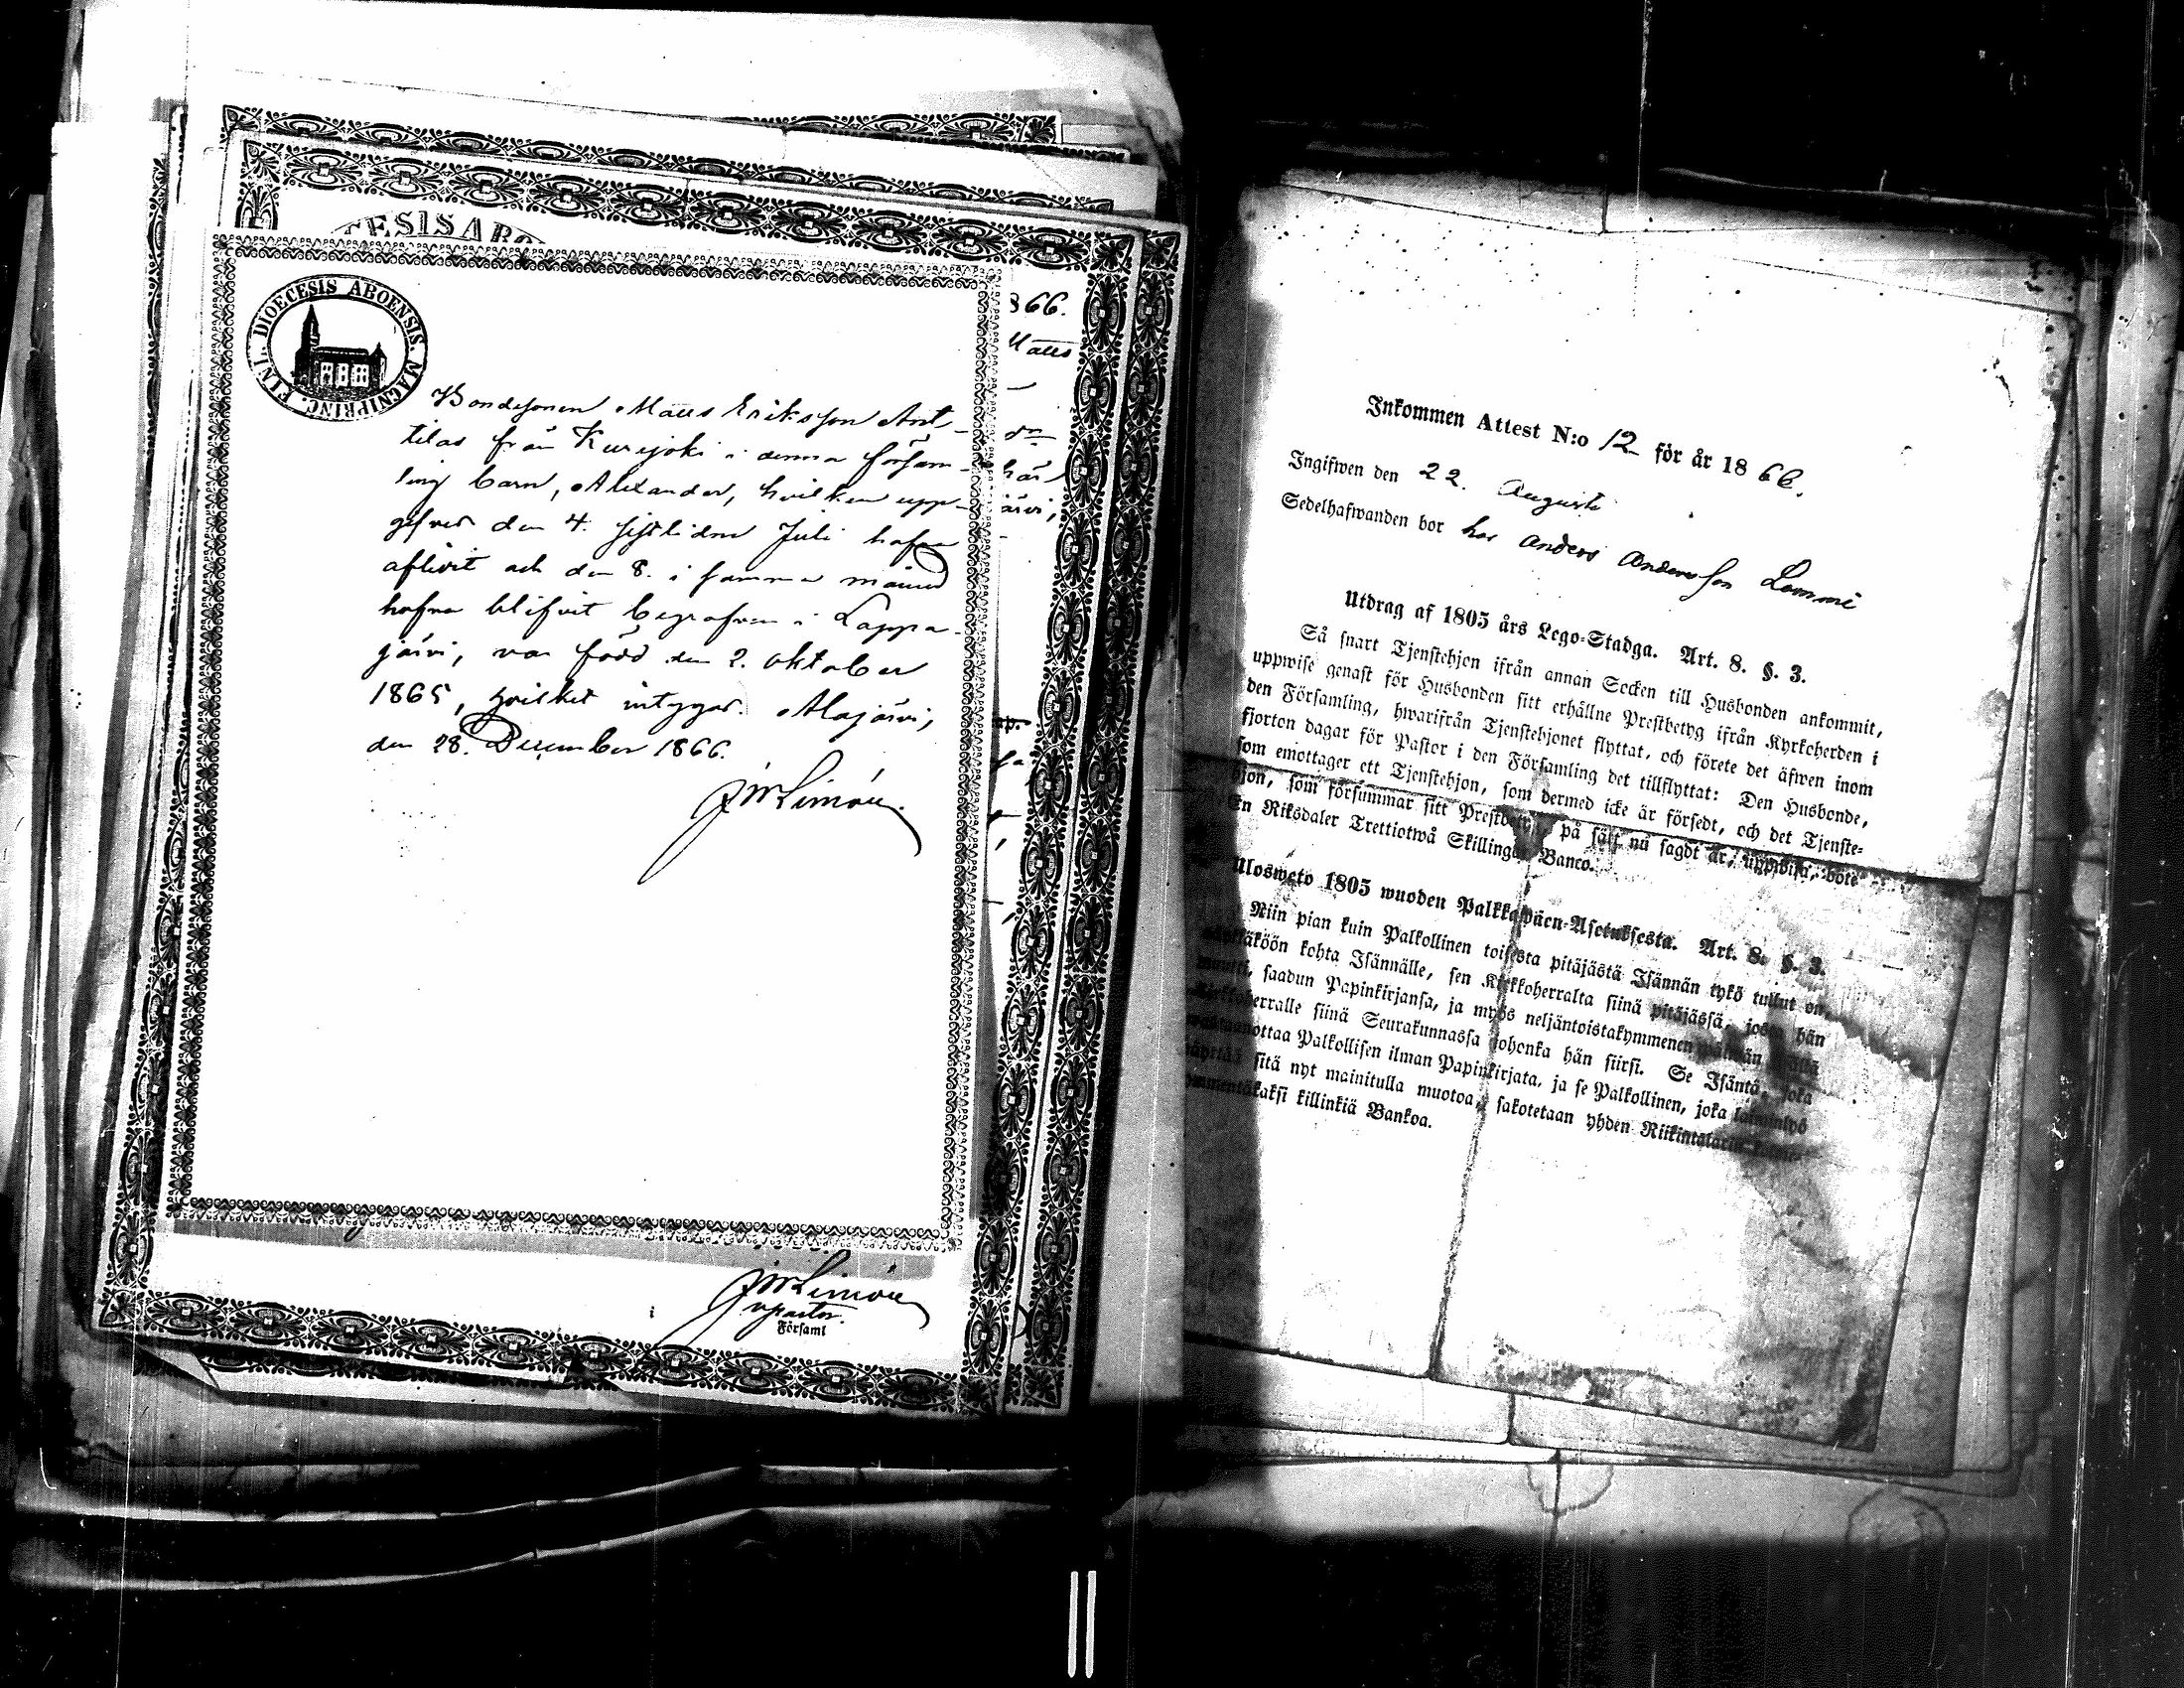 ESIS ABO
FINL. DIOECESIS ABOENSIS. MAGNIPRINC.
Bondesonen Matts Eriksson Ant-
tilas från Kurejoki i denna försam-
ling barn, Alexander, hvilken upp-
gifves den 4. sistlidne Juli hafva
aflidit och den 8. i samma månad
hafva blifvit begrafven i Lappa-
järvi, var född den 2. Oktober
1865, hvilket intygar. Alajärvi,
den 28. December 1866.
866.
Matts
här
järvi,
vpastor.
Församl
Inkommen Attest N:o 12 för år 1866.
Ingifwen den 22. Augusti
Sedelhafwanden bor hos Anders Andersson Lammi
Utdrag af 1805 års Lego-Stadga. Art. 8. §. 3.
Så snart Tjenstehjon ifrån annan Socken till Husbonden ankommit,
uppwise genast för Husbonden sitt erhållne Prestbetyg ifrån Kyrkoherden i
den Församling, hwarifrån Tjenstehjonet flyttat, och förete det äfwen inom
fjorton dagar för Pastor i den Församling det tillflyttat: Den Husbonde,
som emottager ett Tjenstehjon, som dermed icke är försedt, och det Tjenste-
hjon, som försummar sitt Prestbetyg på sätt nu sagdt är, uppwisa, böte
En Riksdaler Trettiotwå Skillingar Banco.
Ulosweto 1805 wuoden Palkkawäen-Asetuksesta. Art. 8. §. 3.
Niin pian kuin Palkollinen toisesta pitäjästä Isännän tykö tullut on,
näyttäköön kohta Isännälle, sen Kirkkoherralta siinä pitäjässä, josta hän
muutti, saadun Papinkirjansa, ja myös neljäntoistakymmenen päiwän sisällä
Kirkkoherralle siinä Seurakunnassa johonka hän siirsi. Se Isäntä, joka
wastaanottaa Palkollisen ilman Papinkirjata, ja se Palkollinen, joka laiminlyö
näyttää sitä nyt mainitulla muotoa, sakotetaan yhden Riikintalarin
kymmentäkaksi killinkiä Bankoa.